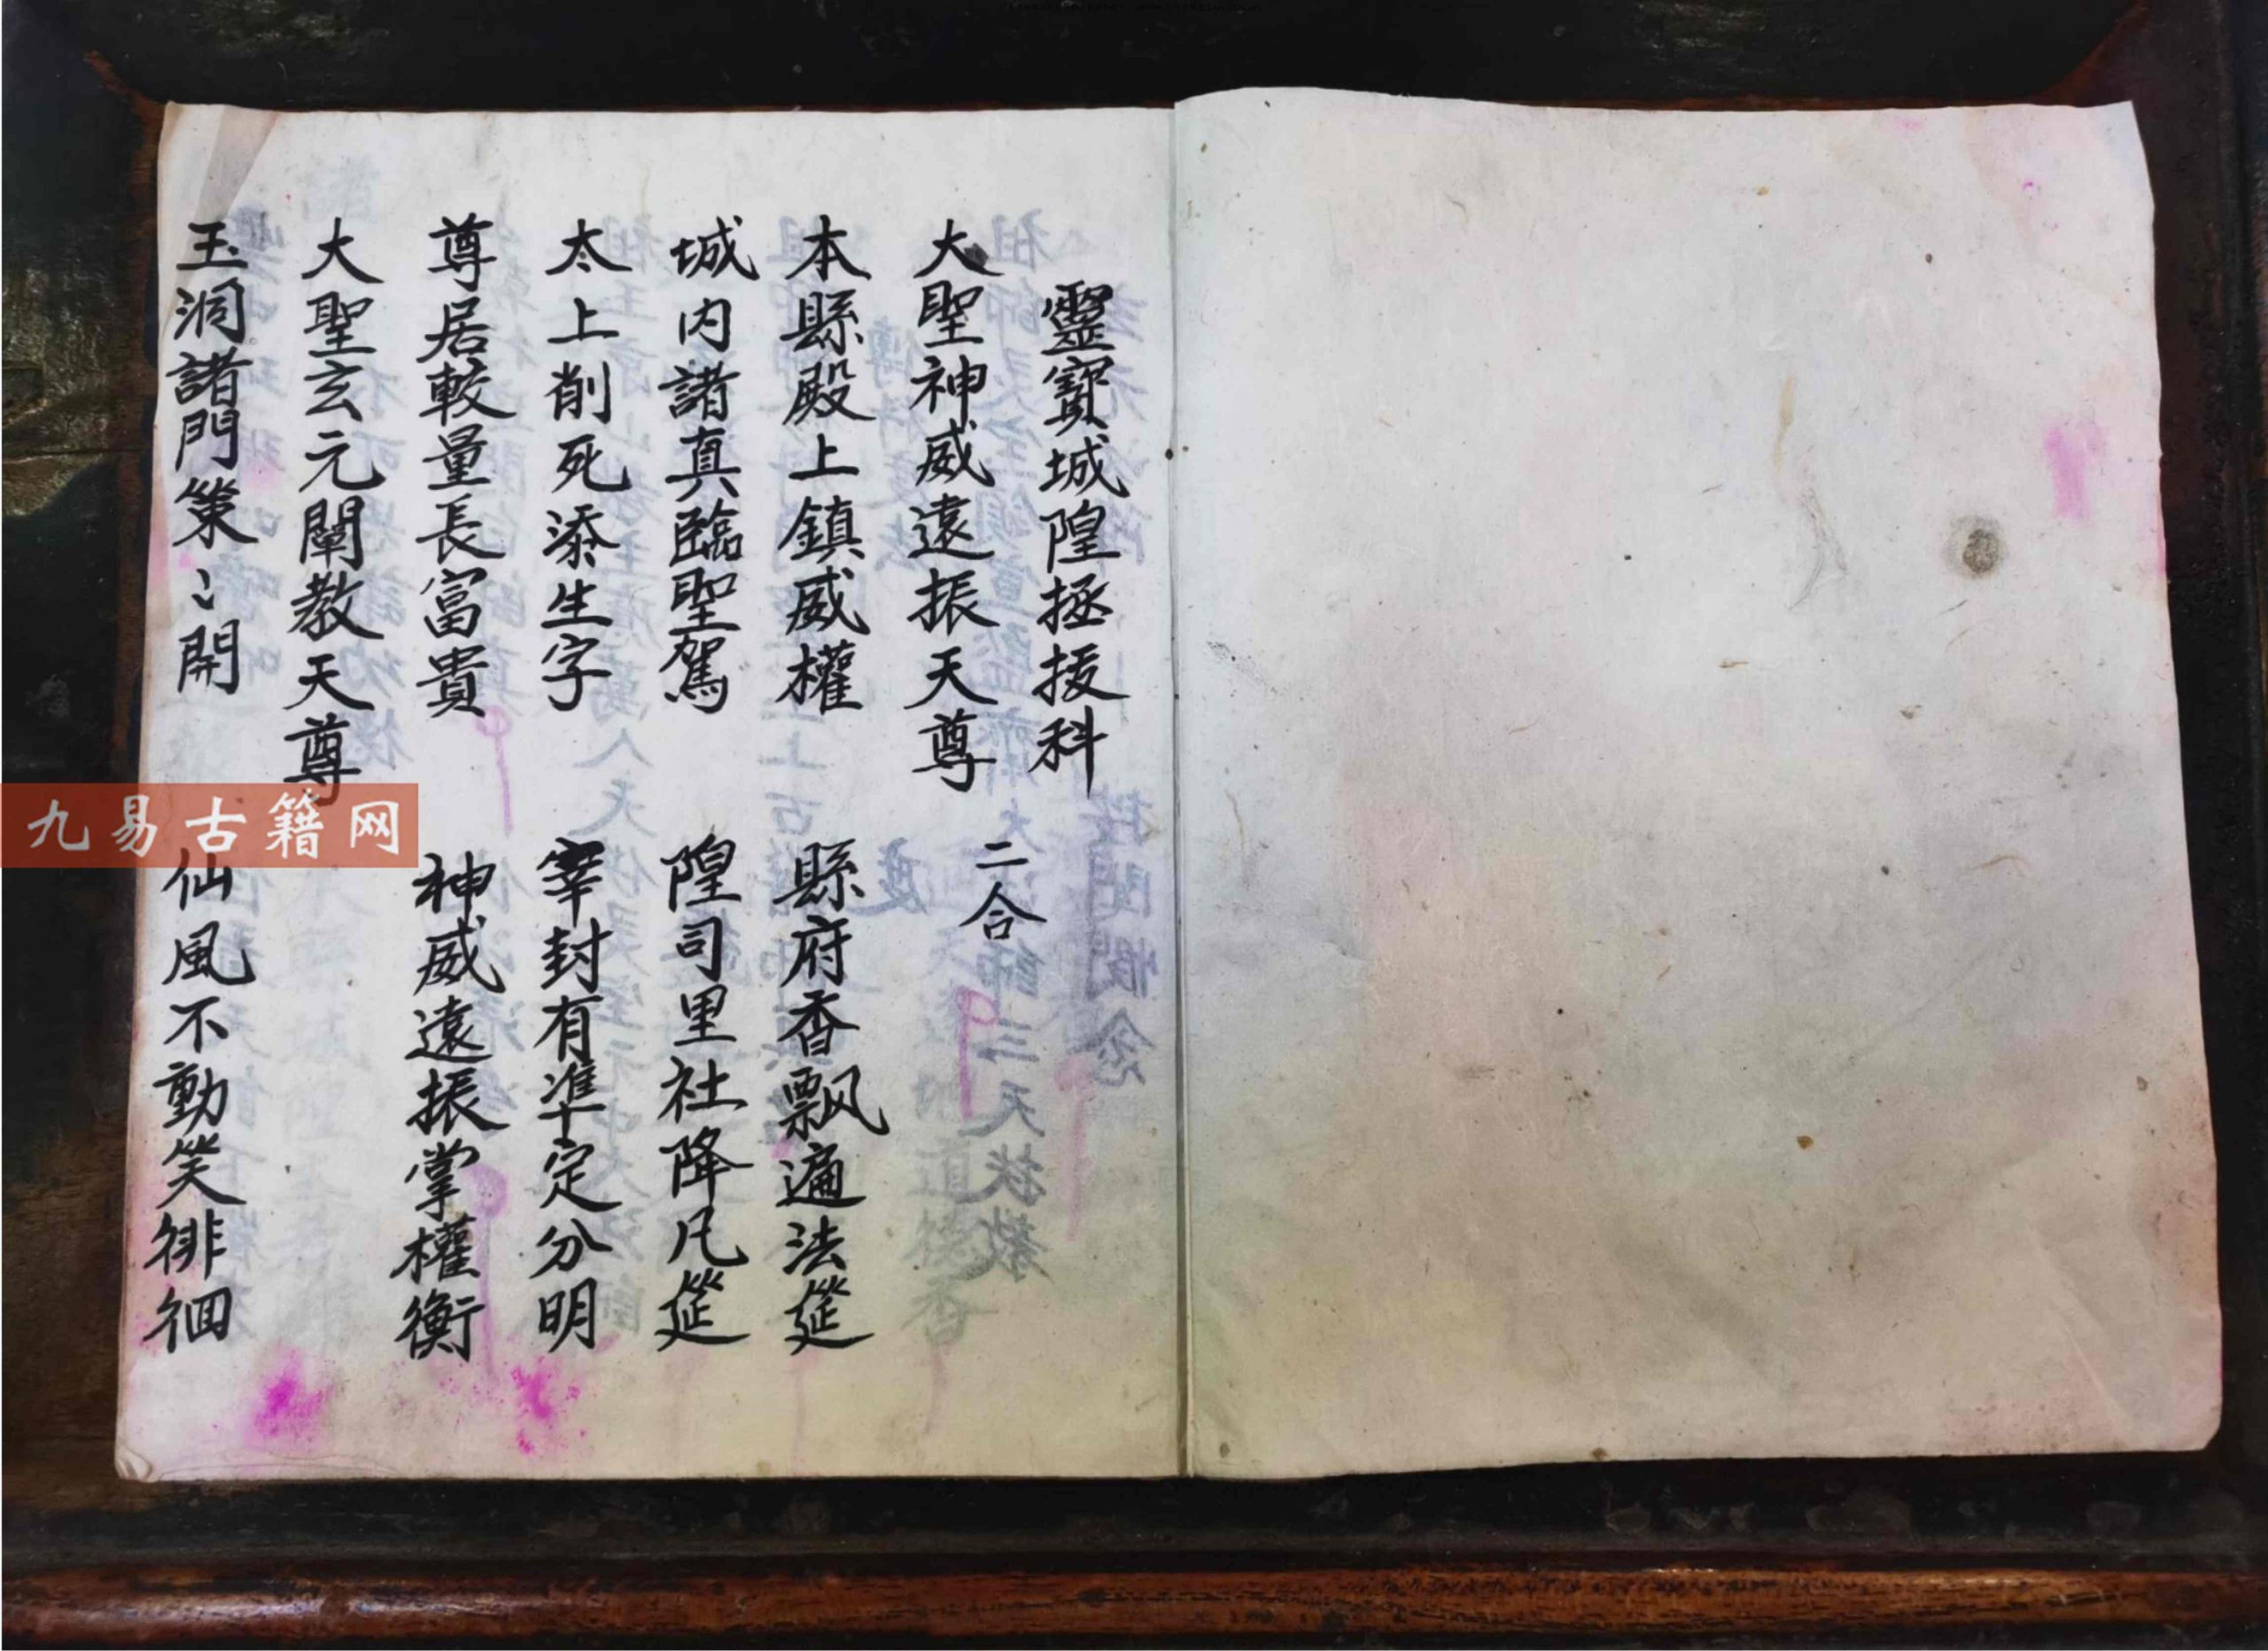 靈寳城隍拯援科
大聖神威遠振天尊 二合
本縣殿上鎮威權 縣府香飄遍法筵
城内諸真臨聖駕 隍司里社降凡筵
太上削死添生字 宰封有準定分明
尊居較量長富貴 神威遠振掌權衡
大聖玄元闡教天尊
玉洞諸門策〻開 仙風不動笑徘徊
九易古籍网